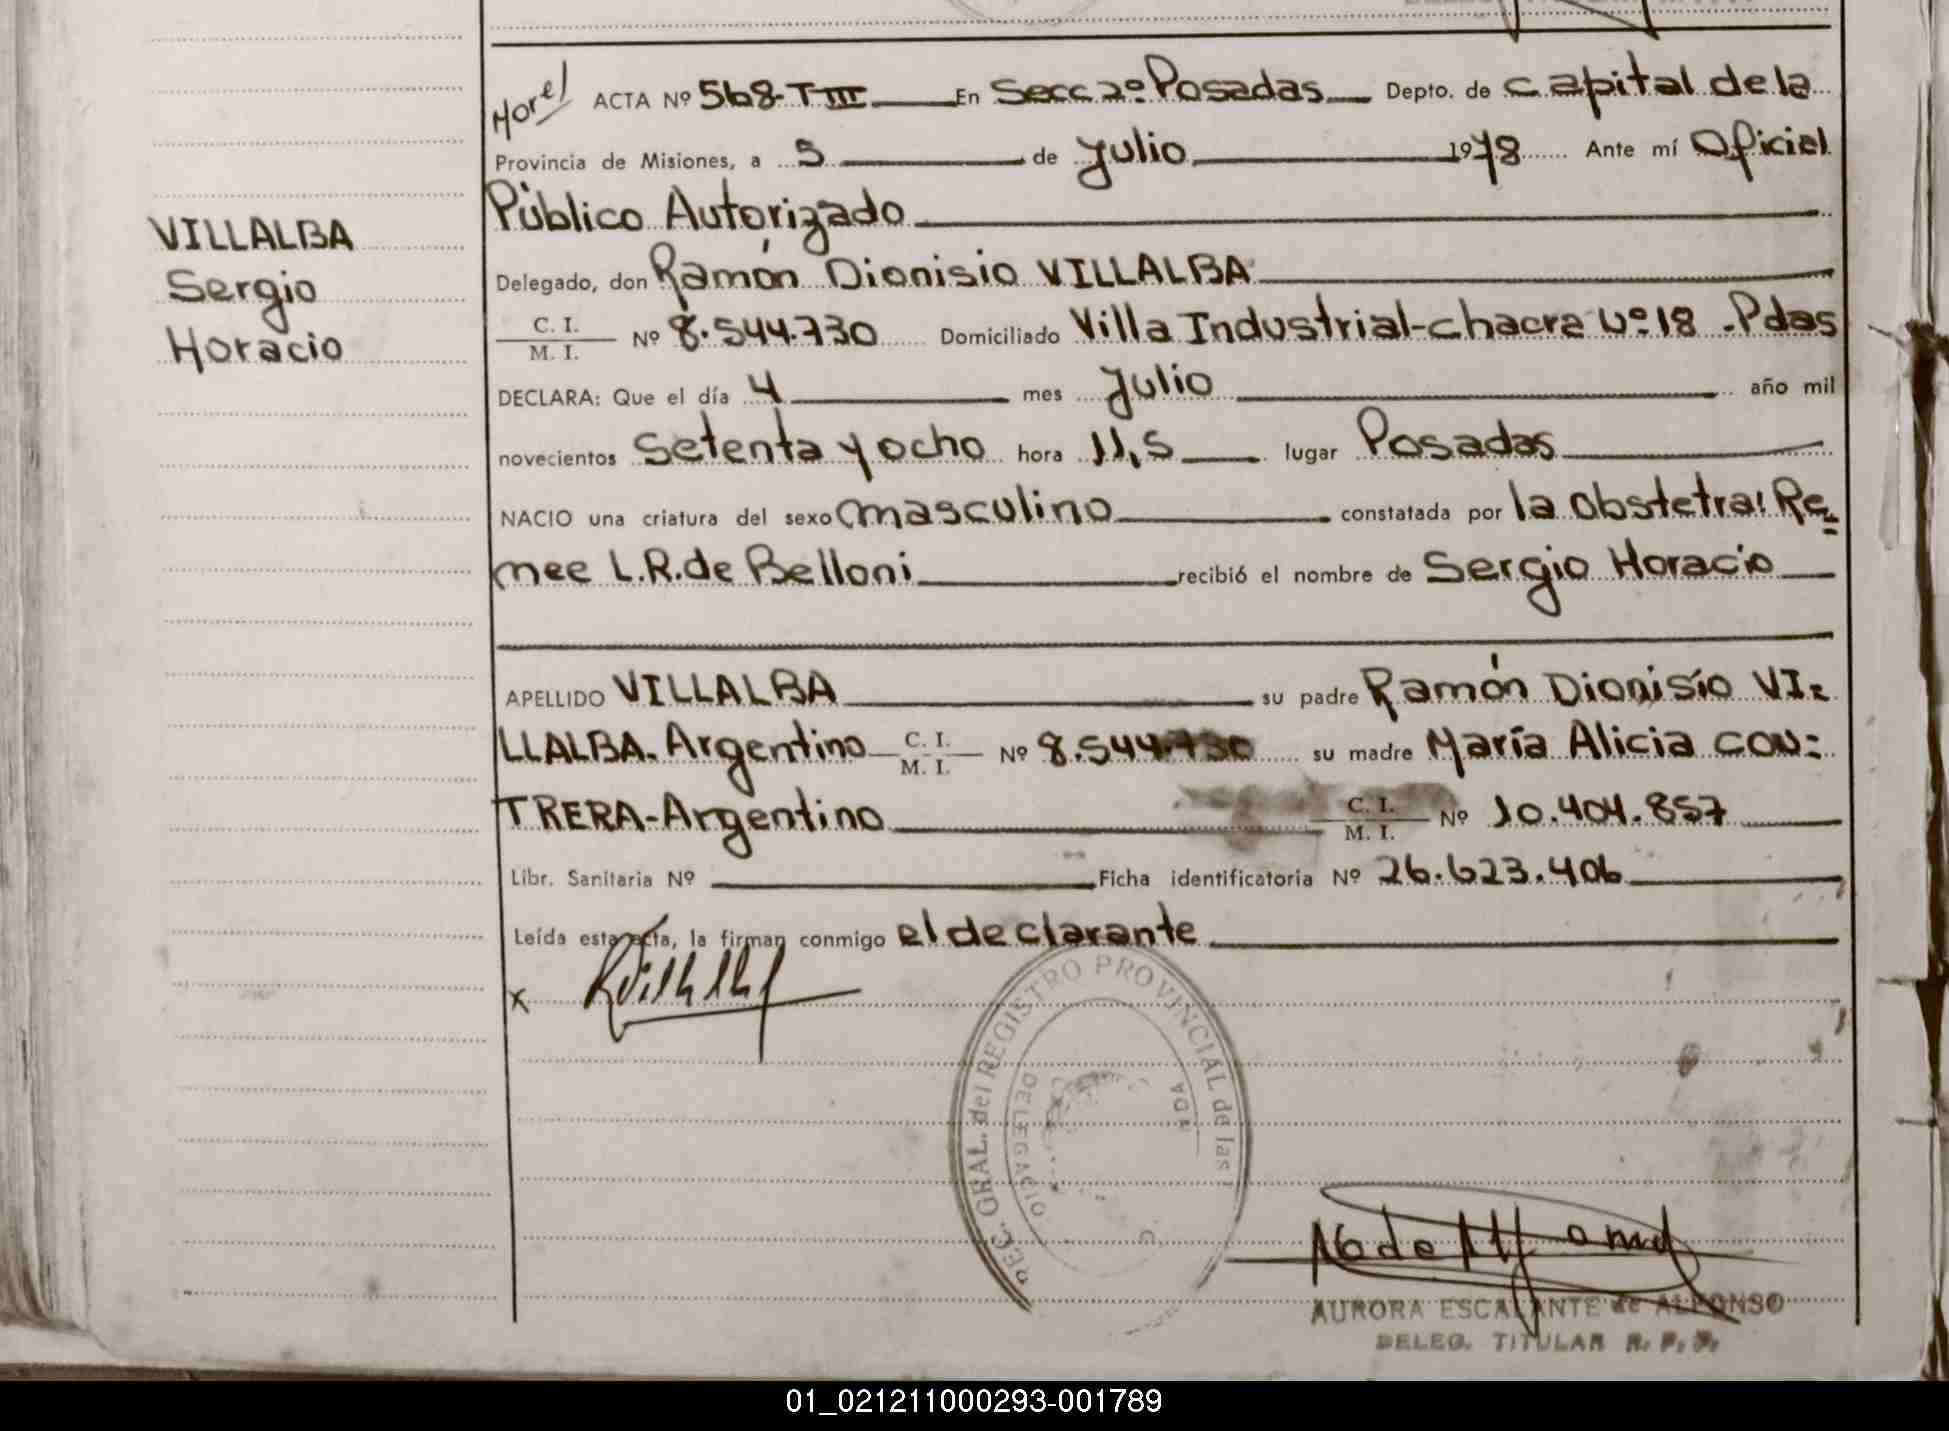 ACTA Nº 568-T III En Secc 2º Posadas Depto. de Capital de la
Provincia de Misiones, a 5 de Julio 1978 Ante mí Oficial
Público Autorizado
VILLALBA
Sergio
Horacio
Delegado, don Ramón Dionisio VILLALBA
C. I.
M. I. Nº 8.544.730 Domiciliado Villa Industrial-chacra Nº 18 - Pdas
DECLARA: Que el día 4 mes Julio año mil
novecientos setenta y ocho hora 11,5 lugar Posadas
NACIO una criatura del sexo masculino constatada por la obstetra: Re=
mee L.R. de Belloni recibió el nombre de Sergio Horacio
APELLIDO VILLALBA su padre Ramón Dionisio VI=
LLALBA. Argentino C. I. M. I. Nº 8.544.730 su madre María Alicia CON=
TRERA-Argentino C. I. M. I. Nº 10.404.857
Libr. Sanitaria Nº Ficha identificatoria Nº 26.623.406
Leída esta acta, la firman conmigo el declarante
x
GRAL. del REGISTRO PROVINCIAL de las
DELEGACIO
AURORA ESCALANTE de ALFONSO
DELEG. TITULAR R. P. P.
01_021211000293-001789